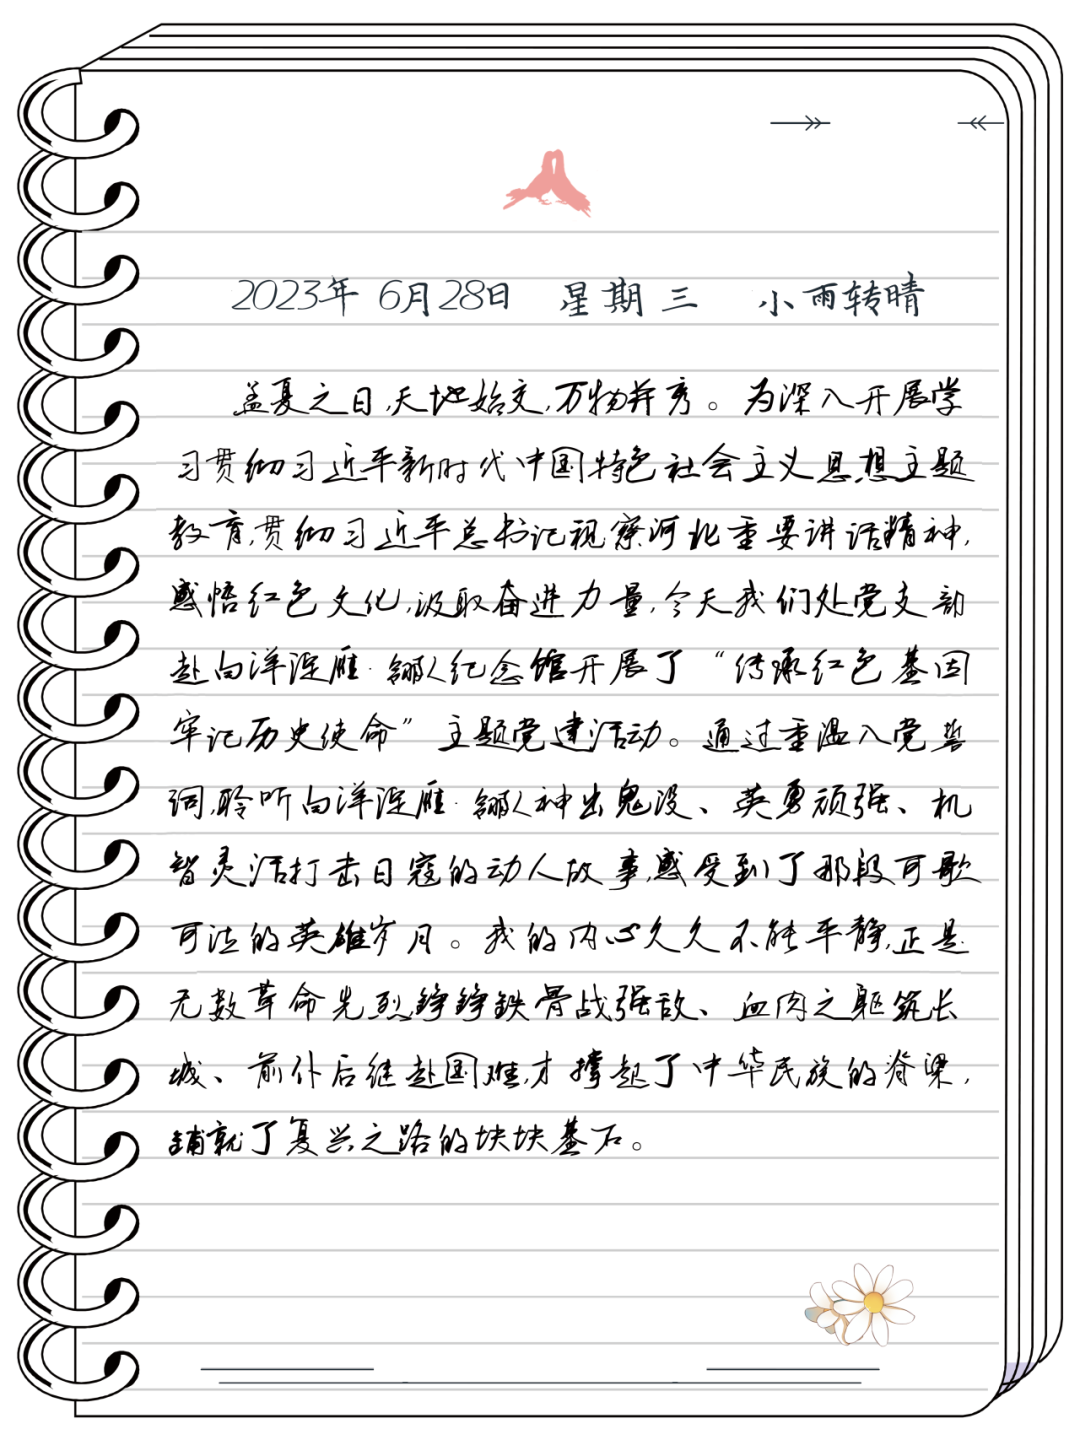 2023年 6月28日 星期三 小雨转晴
孟夏之日,天地始交,万物并秀。为深入开展学
习贯彻习近平新时代中国特色社会主义思想主题
教育,贯彻习近平总书记视察河北重要讲话精神,
感悟红色文化,汲取奋进力量,今天我们处党支部
赴白洋淀雁翎队纪念馆开展了“传承红色基因
牢记历史使命”主题党建活动。通过重温入党誓
词,聆听白洋淀雁翎队神出鬼没、英勇顽强、机
智灵活打击日寇的动人故事,感受到了那段可歌
可泣的英雄岁月。我的内心久久不能平静,正是
无数革命先烈铮铮铁骨战强敌、血肉之躯筑长
城、前仆后继赴国难,才撑起了中华民族的脊梁,
铺就了复兴之路的块块基石。